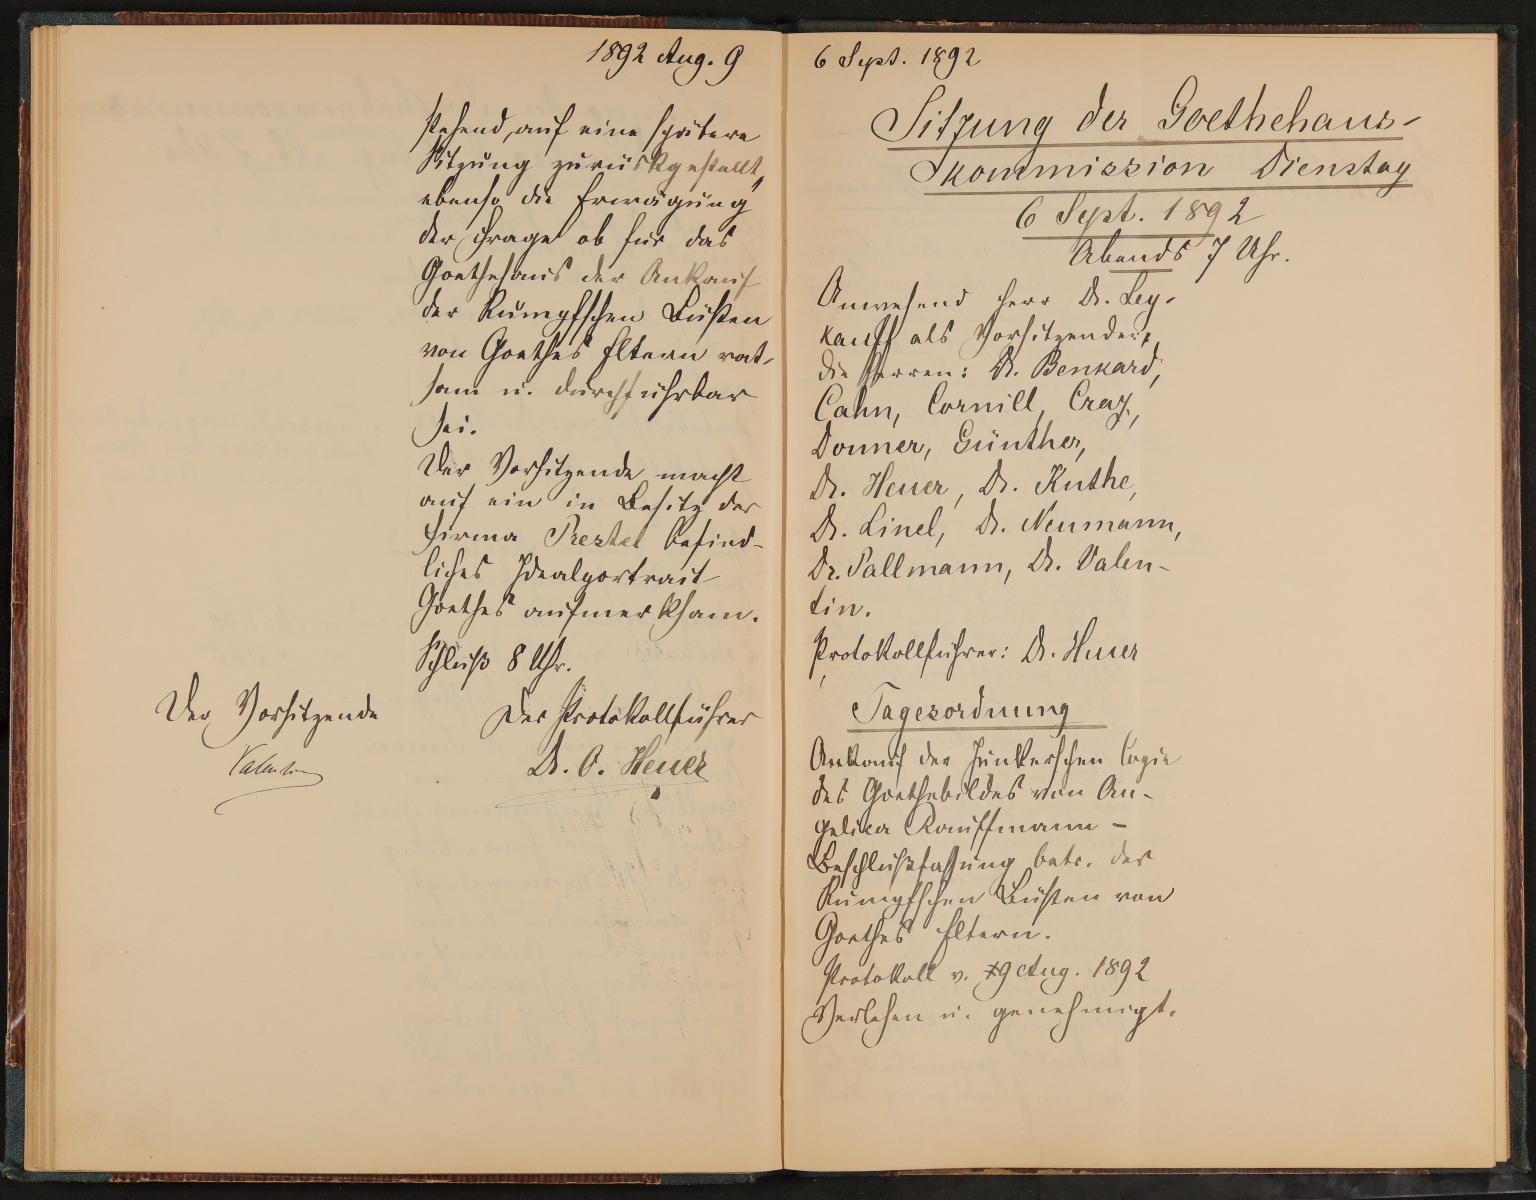 1892 Aug. 9
stehend, auf eine spätere
Sitzung zurückgestellt,
ebenso die Erwägung
der Frage ob für das
Goethehaus der Ankauf
der Rumpfschen Büsten
von Goethes Eltern rat-
sam u. durchführbar
sei.
Der Vorsitzende macht
auf ein in Besitz der
Firma Prestel befind-
liches Idealportrait
Goethes aufmerksam.
Schluß 8 Uhr.
Der Vorsitzende
Valentin
Der Protokollführer
Dr. O. Heuer
6 Sept. 1892
Sitzung der Goethehaus-
kommission Dienstag
6 Sept. 1892
Abends 7 Uhr.
Anwesend Herr Dr. Ley-
kauff als Vorsitzender,
die Herren: Dr. Benkard,
Cahn, Cornill, Cray,
Donner, Günther,
Dr. Heuer, Dr. Kuthe,
Dr. Linel, Dr. Neumann,
Dr. Pallmann, Dr. Valen-
tin.
Protokollführer: Dr. Heuer
Tagesordnung
Ankauf der Junkerschen Copie
des Goethebildes von An-
gelica Kauffmann –
Beschlußfassung betr. der
Rumpfschen Büsten von
Goethes Eltern.
Protokoll v. 9 Aug. 1892
Verlesen u. genehmigt.